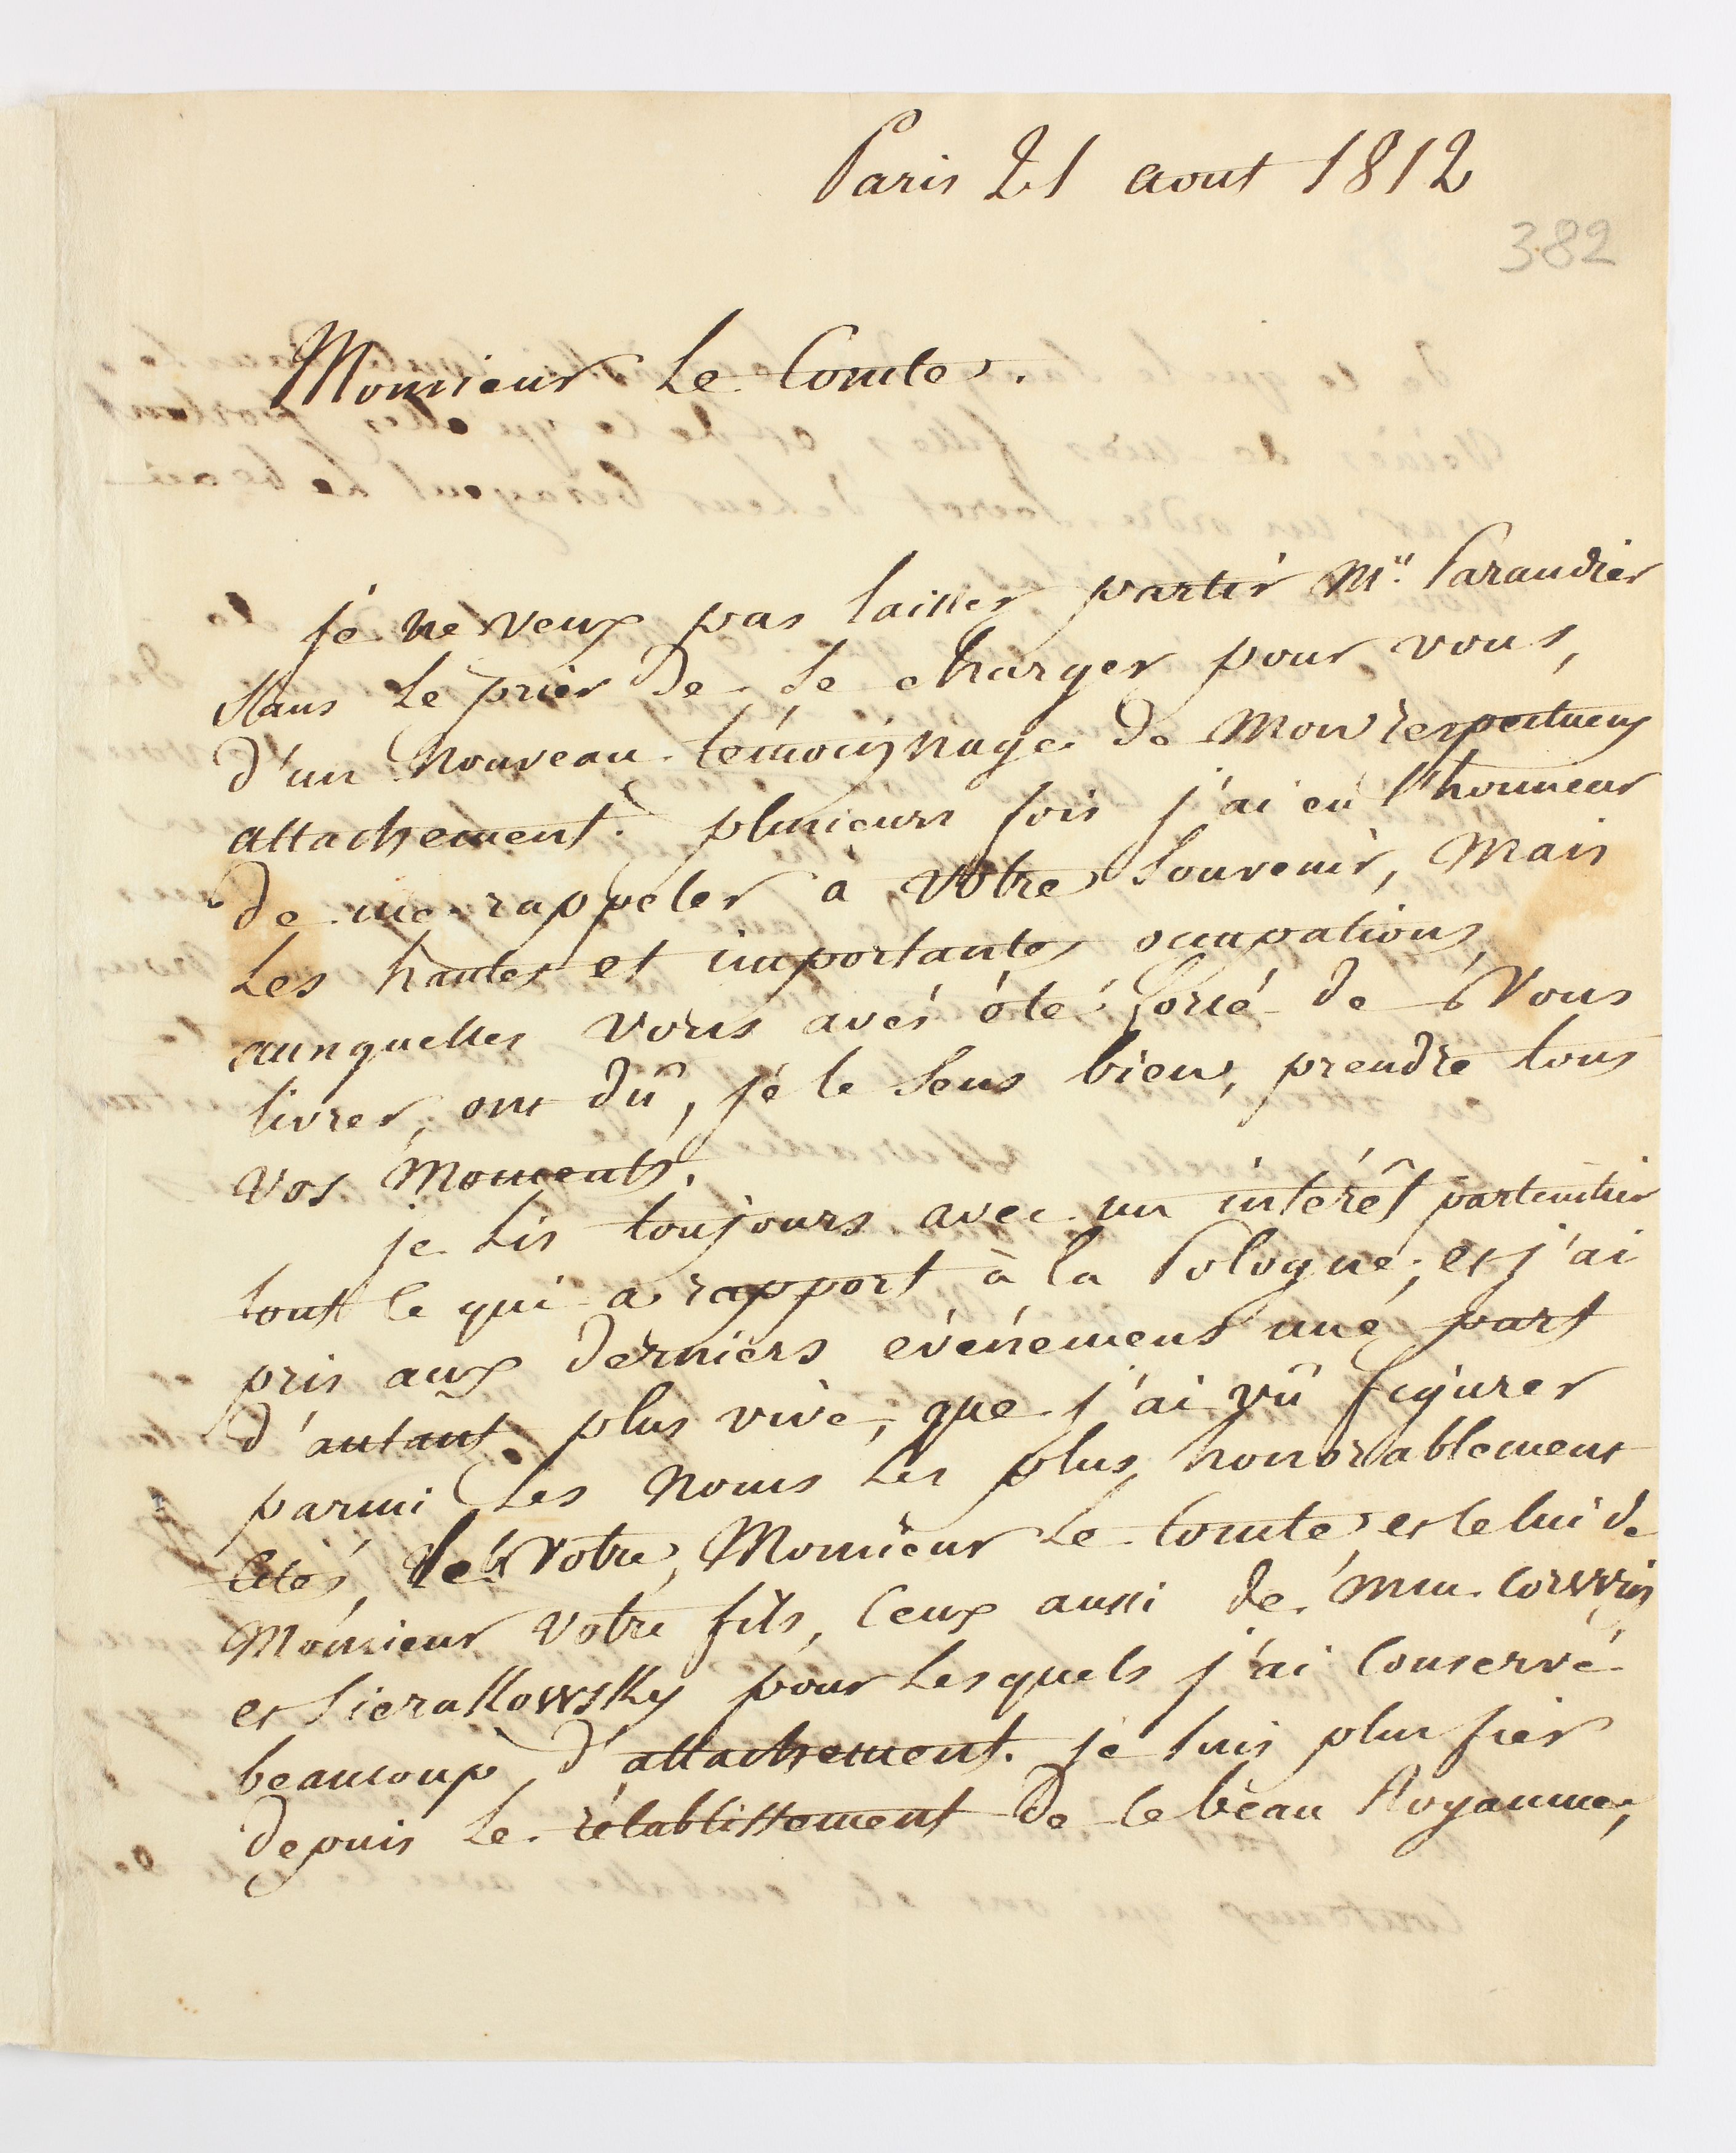 Paris 21 aout 1812
382
Monsieur Le Comte.
je ne veux pas laisser partir Mr. Parandier
sans le prier de se charger pour vous,
d'un nouveau témoignage de mon respectueux
attachement. plusieurs fois j'ai eû l'honneur
de me rappeler à votre souvenir, mais
les hautes et importantes occupations
auxquelles vous avés été forcé de vous
livrer, ont dû, je le sens bien, prendre tous
vos moments.
je lis toujours avec un intérêt particulier
tout ce qui a rapport à la Pologne; et j'ai
pris aux derniers événemens une part
d'autant plus vive, que j'ai vû figurer
parmi les noms les plus honorablement
cités, le votre, Monsieur Le Comte, et celui de
Monsieur votre fils, ceux aussi de mm. Corvvin
et Sierakowsky pour lesquels j'ai conservé
beaucoup d'attachement. je suis plus fier
depuis le rétablissement de ce beau Royaume,